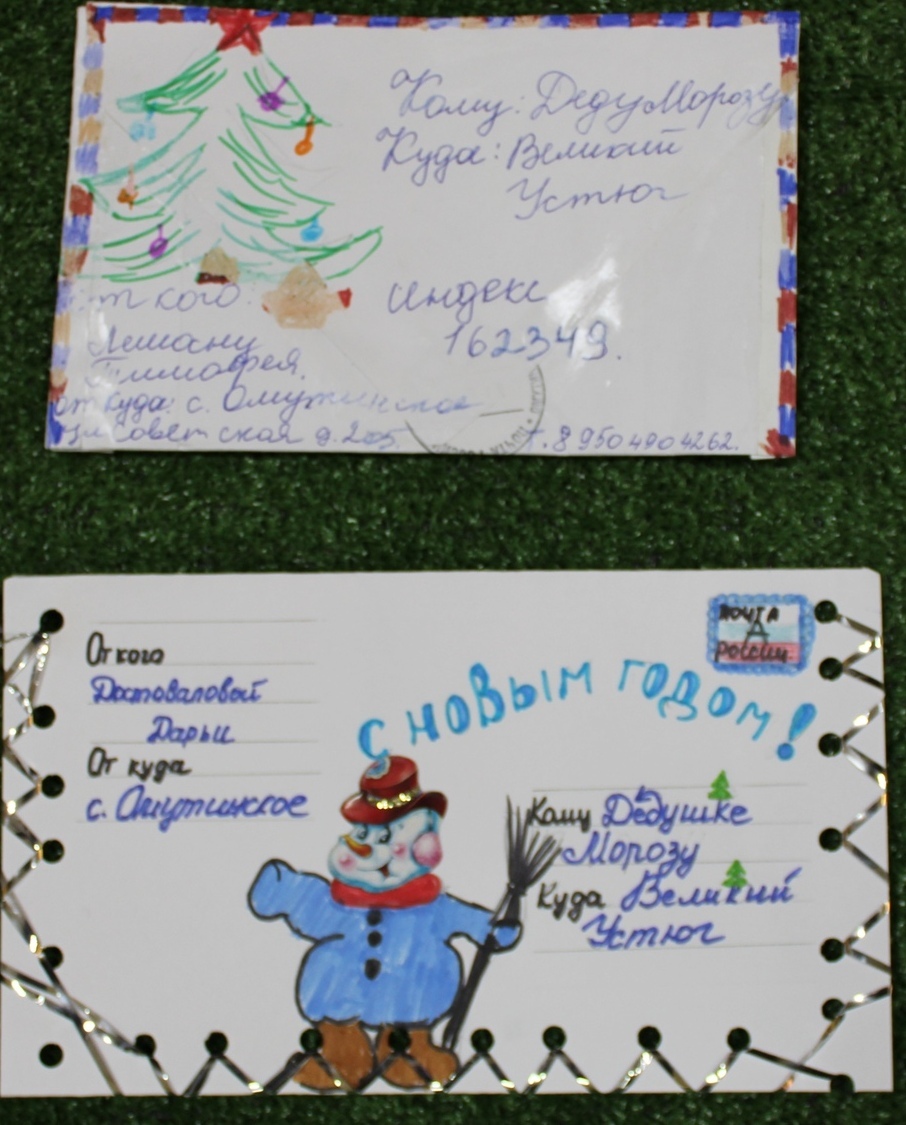 Кому: Деду Морозу
Куда: Великий
Устюг
от кого:
Лешану
Тимофея.
от куда: с. Омутинское
ул Советская д. 205.
Индекс
162349.
т. 8 950 490 4262.
ПОЧТА
РОССИИ
С НОВЫМ ГОДОМ!
От кого
Достоваловой
Дарьи
От куда
с. Омутинское
Кому Дедушке
Морозу
Куда Великий
Устюг